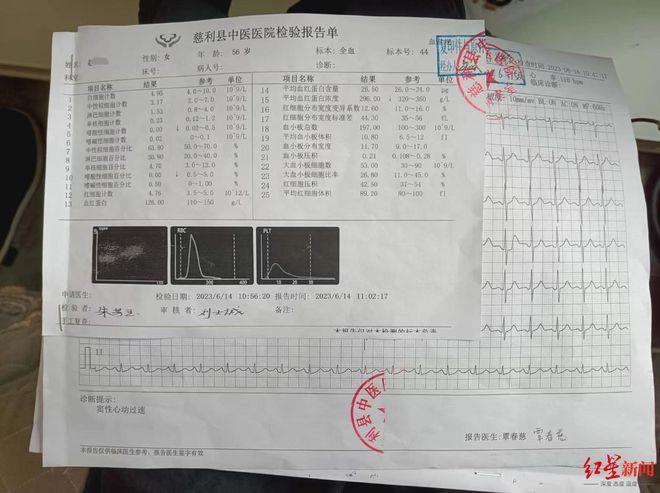 慈利县中医医院检验报告单
性别：女 年 龄： 56 岁 标本：全血 标本号：44
床号： 病人号： 诊断：
检验项目 结果 参考 单位 检验项目 结果 参考 单位
1 白细胞计数 4.95 4.0～10.0 10^9/L 14 平均血红蛋白含量 26.50 26.0～34.0 pg
2 中性粒细胞计数 3.17 2.0～7.0 10^9/L 15 平均血红蛋白浓度 296.00 ↓ 320～360 g/L
3 淋巴细胞计数 1.53 0.8～4.0 10^9/L 16 红细胞分布宽度变异系数 11.0～16.0 %
4 单核细胞计数 0.23 0.12～1.2 10^9/L 17 红细胞分布宽度标准差 44.30 35～56 fL
5 嗜酸性细胞计数 0.00 ↓ 0.02～0.5 10^9/L 18 血小板总数 197.00 100～300 10^9/L
6 嗜碱性细胞计数 0～0.1 10^9/L 19 平均血小板体积 10.80 6.5～12 fL
7 中性粒细胞百分比 50.0～70.0 % 20 血小板分布宽度 11.70 9.0～17.0
8 淋巴细胞百分比 30.90 20.0～40.0 % 21 血小板压积 0.21 0.108～0.28 %
9 单核细胞百分比 4.70 3.0～12.0 % 22 大血小板细胞数 53.00 30～90 10^9/L
10 嗜酸性细胞百分比 0.00 ↓ 0.5～5.0 % 23 大血小板细胞比率 26.80 11.0～45.0 %
11 嗜碱性细胞百分比 0.50 0～1.00 % 24 红细胞压积 42.50 37～54 %
12 红细胞计数 4.76 3.5～5.0 10^12/L 25 平均红细胞体积 89.20 80～100 fl
13 血红蛋白 126.00 110～150 g/L
RBC PLT
200 400 10 20 30
申请医生： 检验日期： 2023/6/14 10:56:20 报告时间： 2023/6/14 11:02:17
检 验 者： 审 核 者： 备注：
手工复查：
本报告仅对本检测的标本负责
检查时间:2023-06-14 10:47:11
心 率: 110 bpm
临床诊断:
10mm/mv BL:ON AC:ON MF:60Hz
II
诊断提示:
窦性心动过速
慈利县中医
报告医生: 覃春慈 覃春慈
本报告仅供临床医生参考，报告医生签字有效
红星新闻
深度 态度 温度